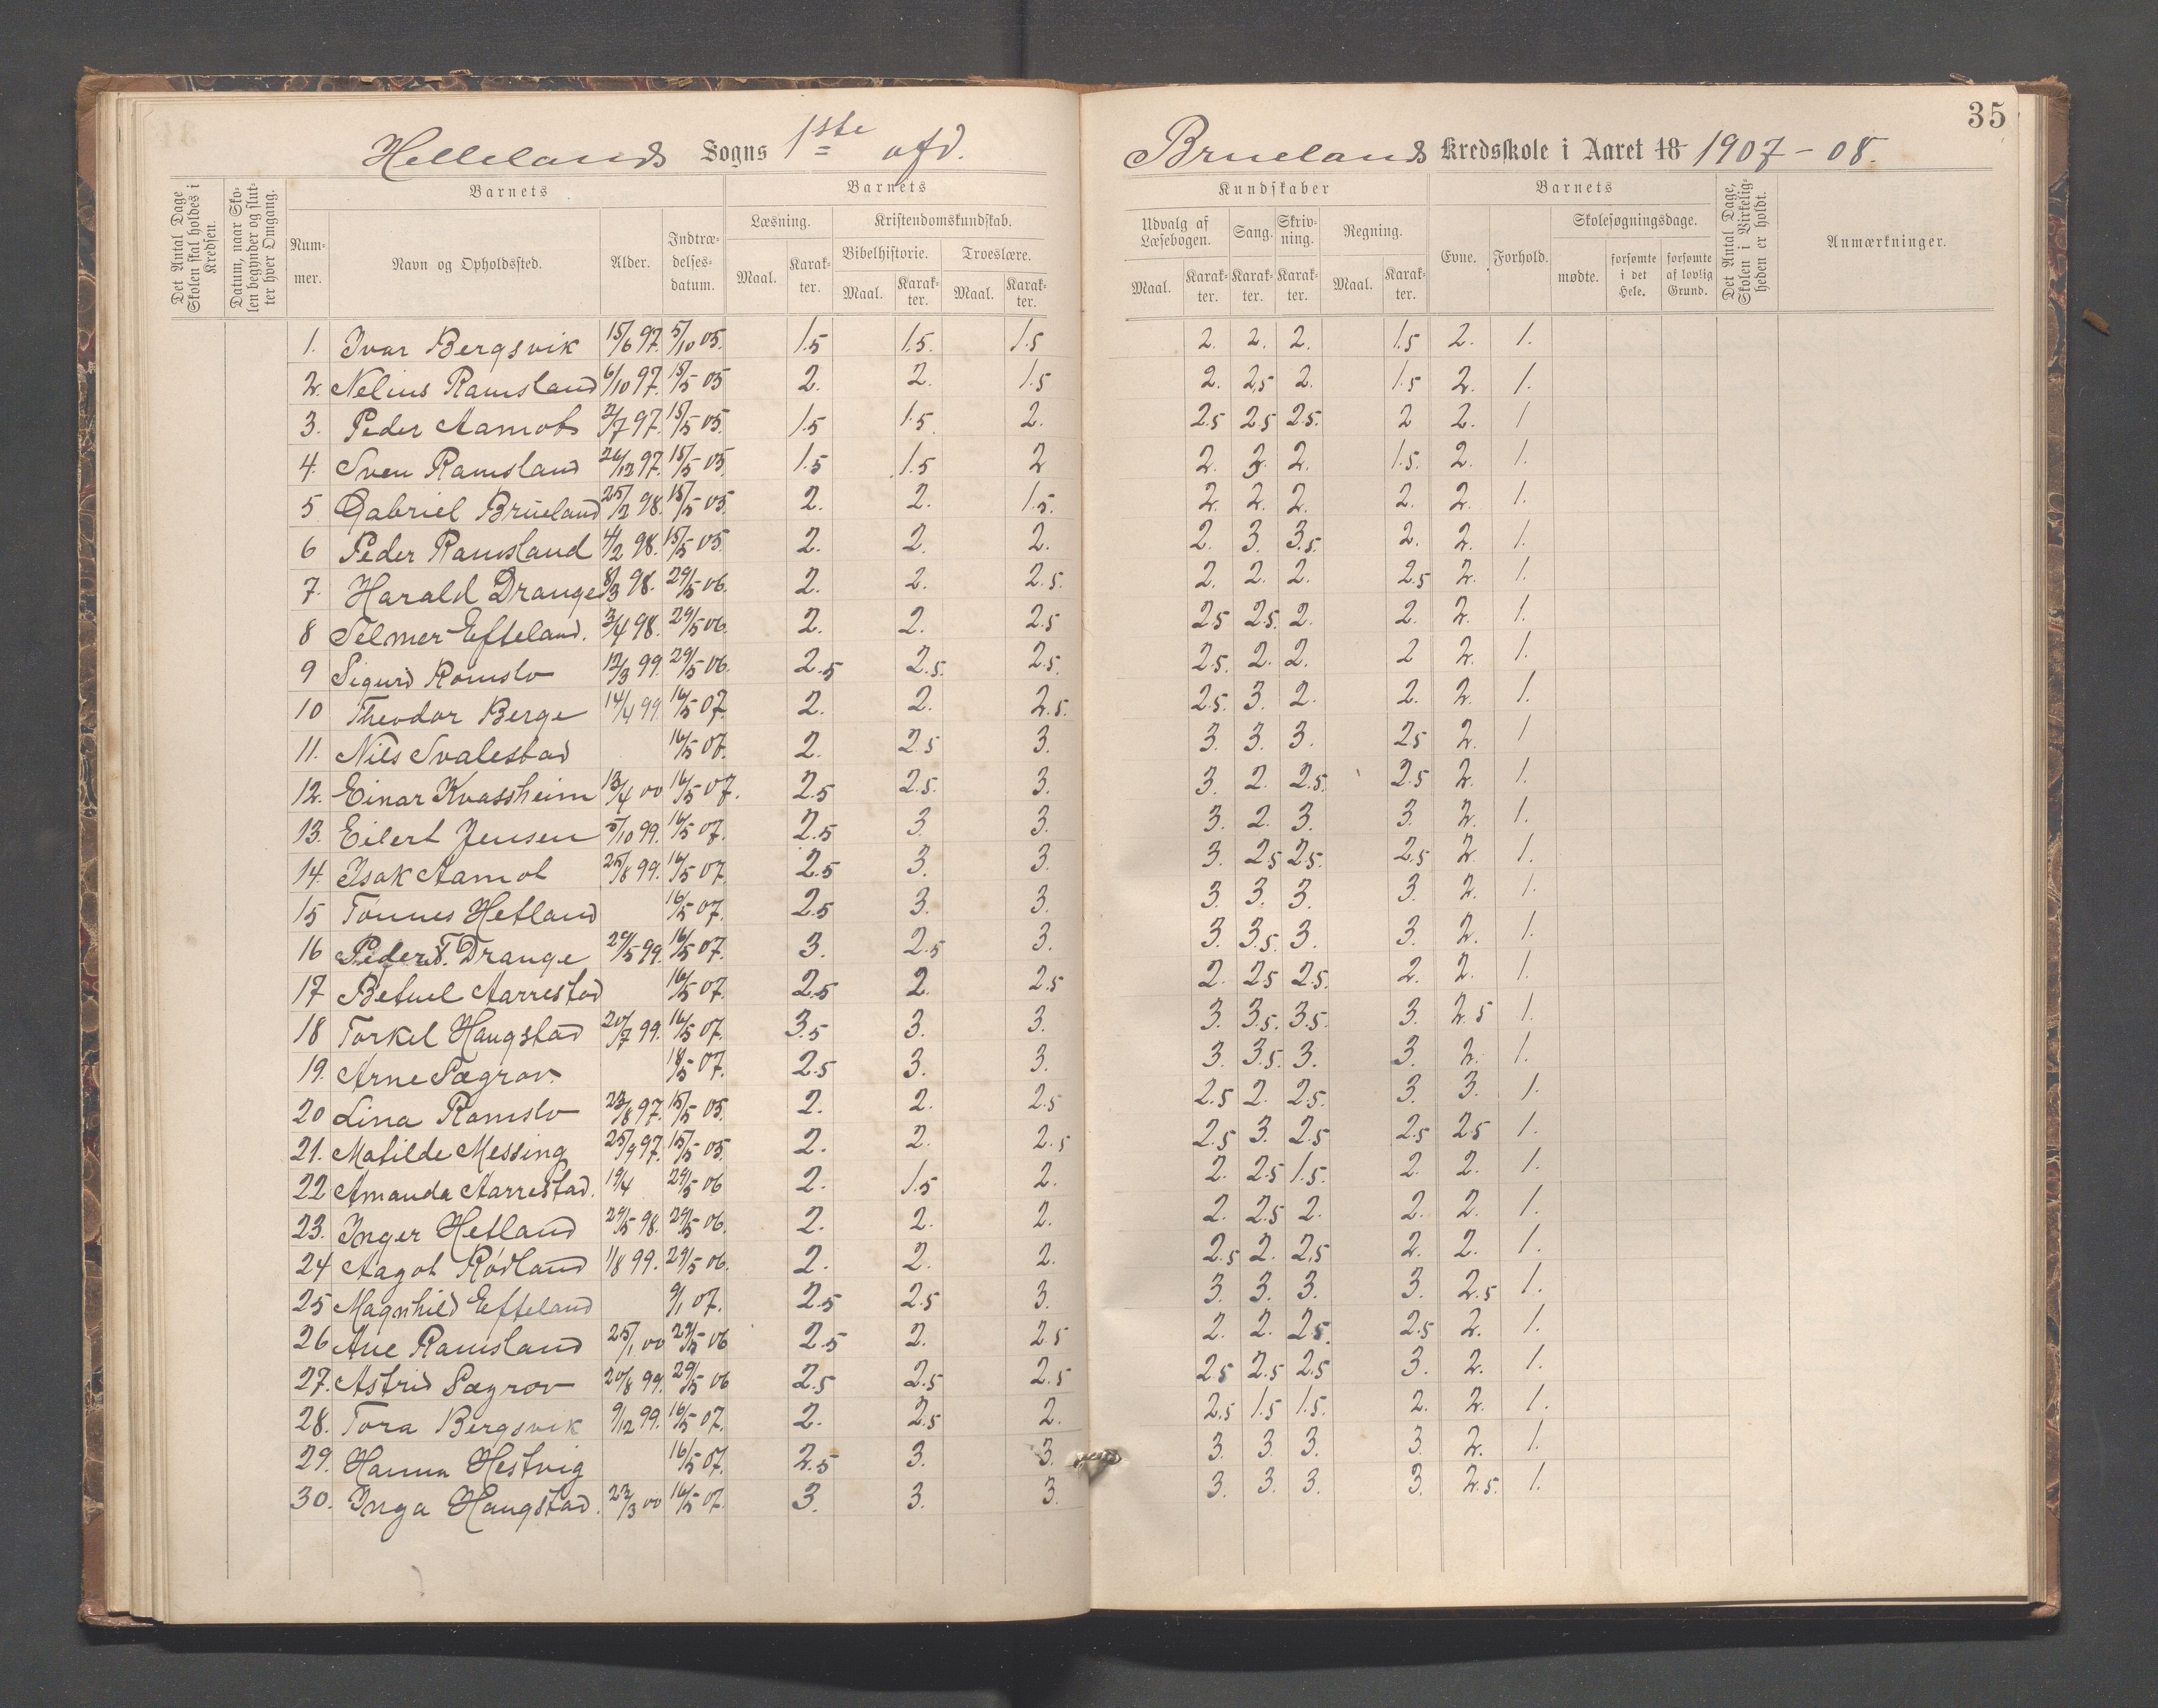 35
Hellelands Sogns 1ste afd. Bruelands Kredsskole i Aaret 18 1907-08.
Det Antal Dage Skolen skal holdes i Kredsen.
Datum, naar Skolen begynder og slutter hver Omgang.
Barnets
Nummer.
Navn og Opholdssted.
Alder.
Indtrædelsesdatum.
Barnets
Læsning.
Maal. Karakter.
Kristendomskundskab.
Bibelhistorie. Troeslære.
Maal. Karakter. Maal. Karakter.
Kundskaber
Udvalg af Læsebogen. Sang. Skrivning. Regning.
Maal. Karakter. Karakter. Karakter. Maal. Karakter.
Barnets
Evne. Forhold. Skolesøgningsdage.
mødte. forsømte i det Hele. forsømte af lovlig Grund.
Det Antal Dage, Skolen i Virkeligheden er holdt.
Anmærkninger.
1. Ivar Bergsvik 15/6 97. 5/10 05. 1.5 1.5. 1.5 2. 2. 2. 1.5 2. 1.
2. Nelius Ramsland 6/10 97. 15/5 05 2. 2. 1.5 2. 2.5 2. 1.5 2. 1.
3. Peder Aamot 2/7 97. 15/5 05. 1.5 1.5 2. 2.5 2.5 2.5. 2 2. 1
4. Sven Ramsland 26/12 97. 15/5 05 1.5 1.5 2 2. 3. 2. 1.5. 2. 1.
5 Gabriel Brueland 25/2 98. 15/5 05. 2. 2. 1.5. 2. 2. 2. 2. 2. 1.
6 Peder Ramsland 4/2 98. 15/5 05 2. 2. 2. 2. 3. 3.5. 2. 2. 1.
7. Harald Drange 8/3 98. 29/5 06. 2. 2. 2.5. 2. 2. 2. 2.5 2. 1.
8 Telmer Efteland. 3/4 98. 29/5 06. 2. 2. 2.5 2.5 2.5. 2. 2. 2. 1.
9 Sigurd Ramslo 12/3 99. 29/5 06. 2.5 2.5. 2.5. 2.5. 2. 2. 2 2. 1.
10 Theodor Berge 14/4 99. 16/5 07. 2. 2. 2.5. 2.5. 3. 2. 2. 2. 1.
11. Nils Svalestad 16/5 07. 2. 2.5 3. 3. 3. 3. 2.5 2. 1
12. Einar Kvassheim 13/4 00 16/5 07. 2.5 2.5. 3. 3. 2. 2.5. 2.5 2. 1.
13. Eilert Jensen 5/10 99. 16/5 07. 2.5 3. 3. 3. 2. 3. 3. 2. 1.
14. Isak Aamot 25/8 99. 16/5 07. 2.5 3. 3. 3. 2.5 2.5. 2.5 2. 1.
15 Tonnes Hetland 16/5 07. 2.5 3. 3. 3. 3. 3. 3. 2. 1.
16 Peder T. Drange 29/5 99. 16/5 07. 3. 2.5 3. 3. 3.5. 3. 3. 2. 1.
17 Betuel Aarrestad 16/5 07. 2.5 2. 2.5 2. 2.5 2.5. 2. 2. 1.
18 Torkel Haugstad 20/7 99. 16/5 07. 3.5 3. 3. 3. 3.5. 3.5. 3. 2.5 1.
19. Arne Sægrov. 18/5 07. 2.5 3. 3. 3. 3.5. 3. 3. 2. 1.
20 Lina Ramslo 23/8 97. 15/5 05. 2. 2. 2.5 2.5 2. 2.5. 3. 3. 1.
21. Matilde Messing 25/9 97. 15/5 05. 2. 2. 2.5 2.5 3. 2.5 2.5 2.5 1.
22 Amanda Aarrestad. 19/4 29/5 06 2. 1.5 2. 2. 2.5 1.5. 2. 2. 1.
23. Inger Hetland 29/5 98. 29/5 06. 2. 2. 2. 2. 2.5 2. 2. 2. 1.
24 Aagot Rødland 1/8 99. 29/5 06. 2. 2. 2. 2.5 2. 2.5 2. 2. 1.
25 Magnhild Efteland 9/1 07. 2.5 2.5 3. 3. 3. 3. 3. 2.5 1.
26 Ane Ramsland 25/1 00 29/5 06 2.5 2. 2.5 2. 2. 2.5. 2.5 2. 1.
27. Astrid Sægrov 20/8 99. 29/5 06 2.5 2.5 2.5 2.5 2.5 2.5 3. 2. 1.
28. Tora Bergsvik 9/12 99. 16/5 07. 2. 2.5 2. 2.5 1.5 1.5. 2. 2. 1.
29. Hanna Hestvig 16/5 07. 2.5 3. 3. 3. 3. 3. 3. 2. 1.
30. Inga Haugstad. 22/3 00 16/5 07. 3. 3. 3. 3. 3. 3. 3. 2.5. 1.